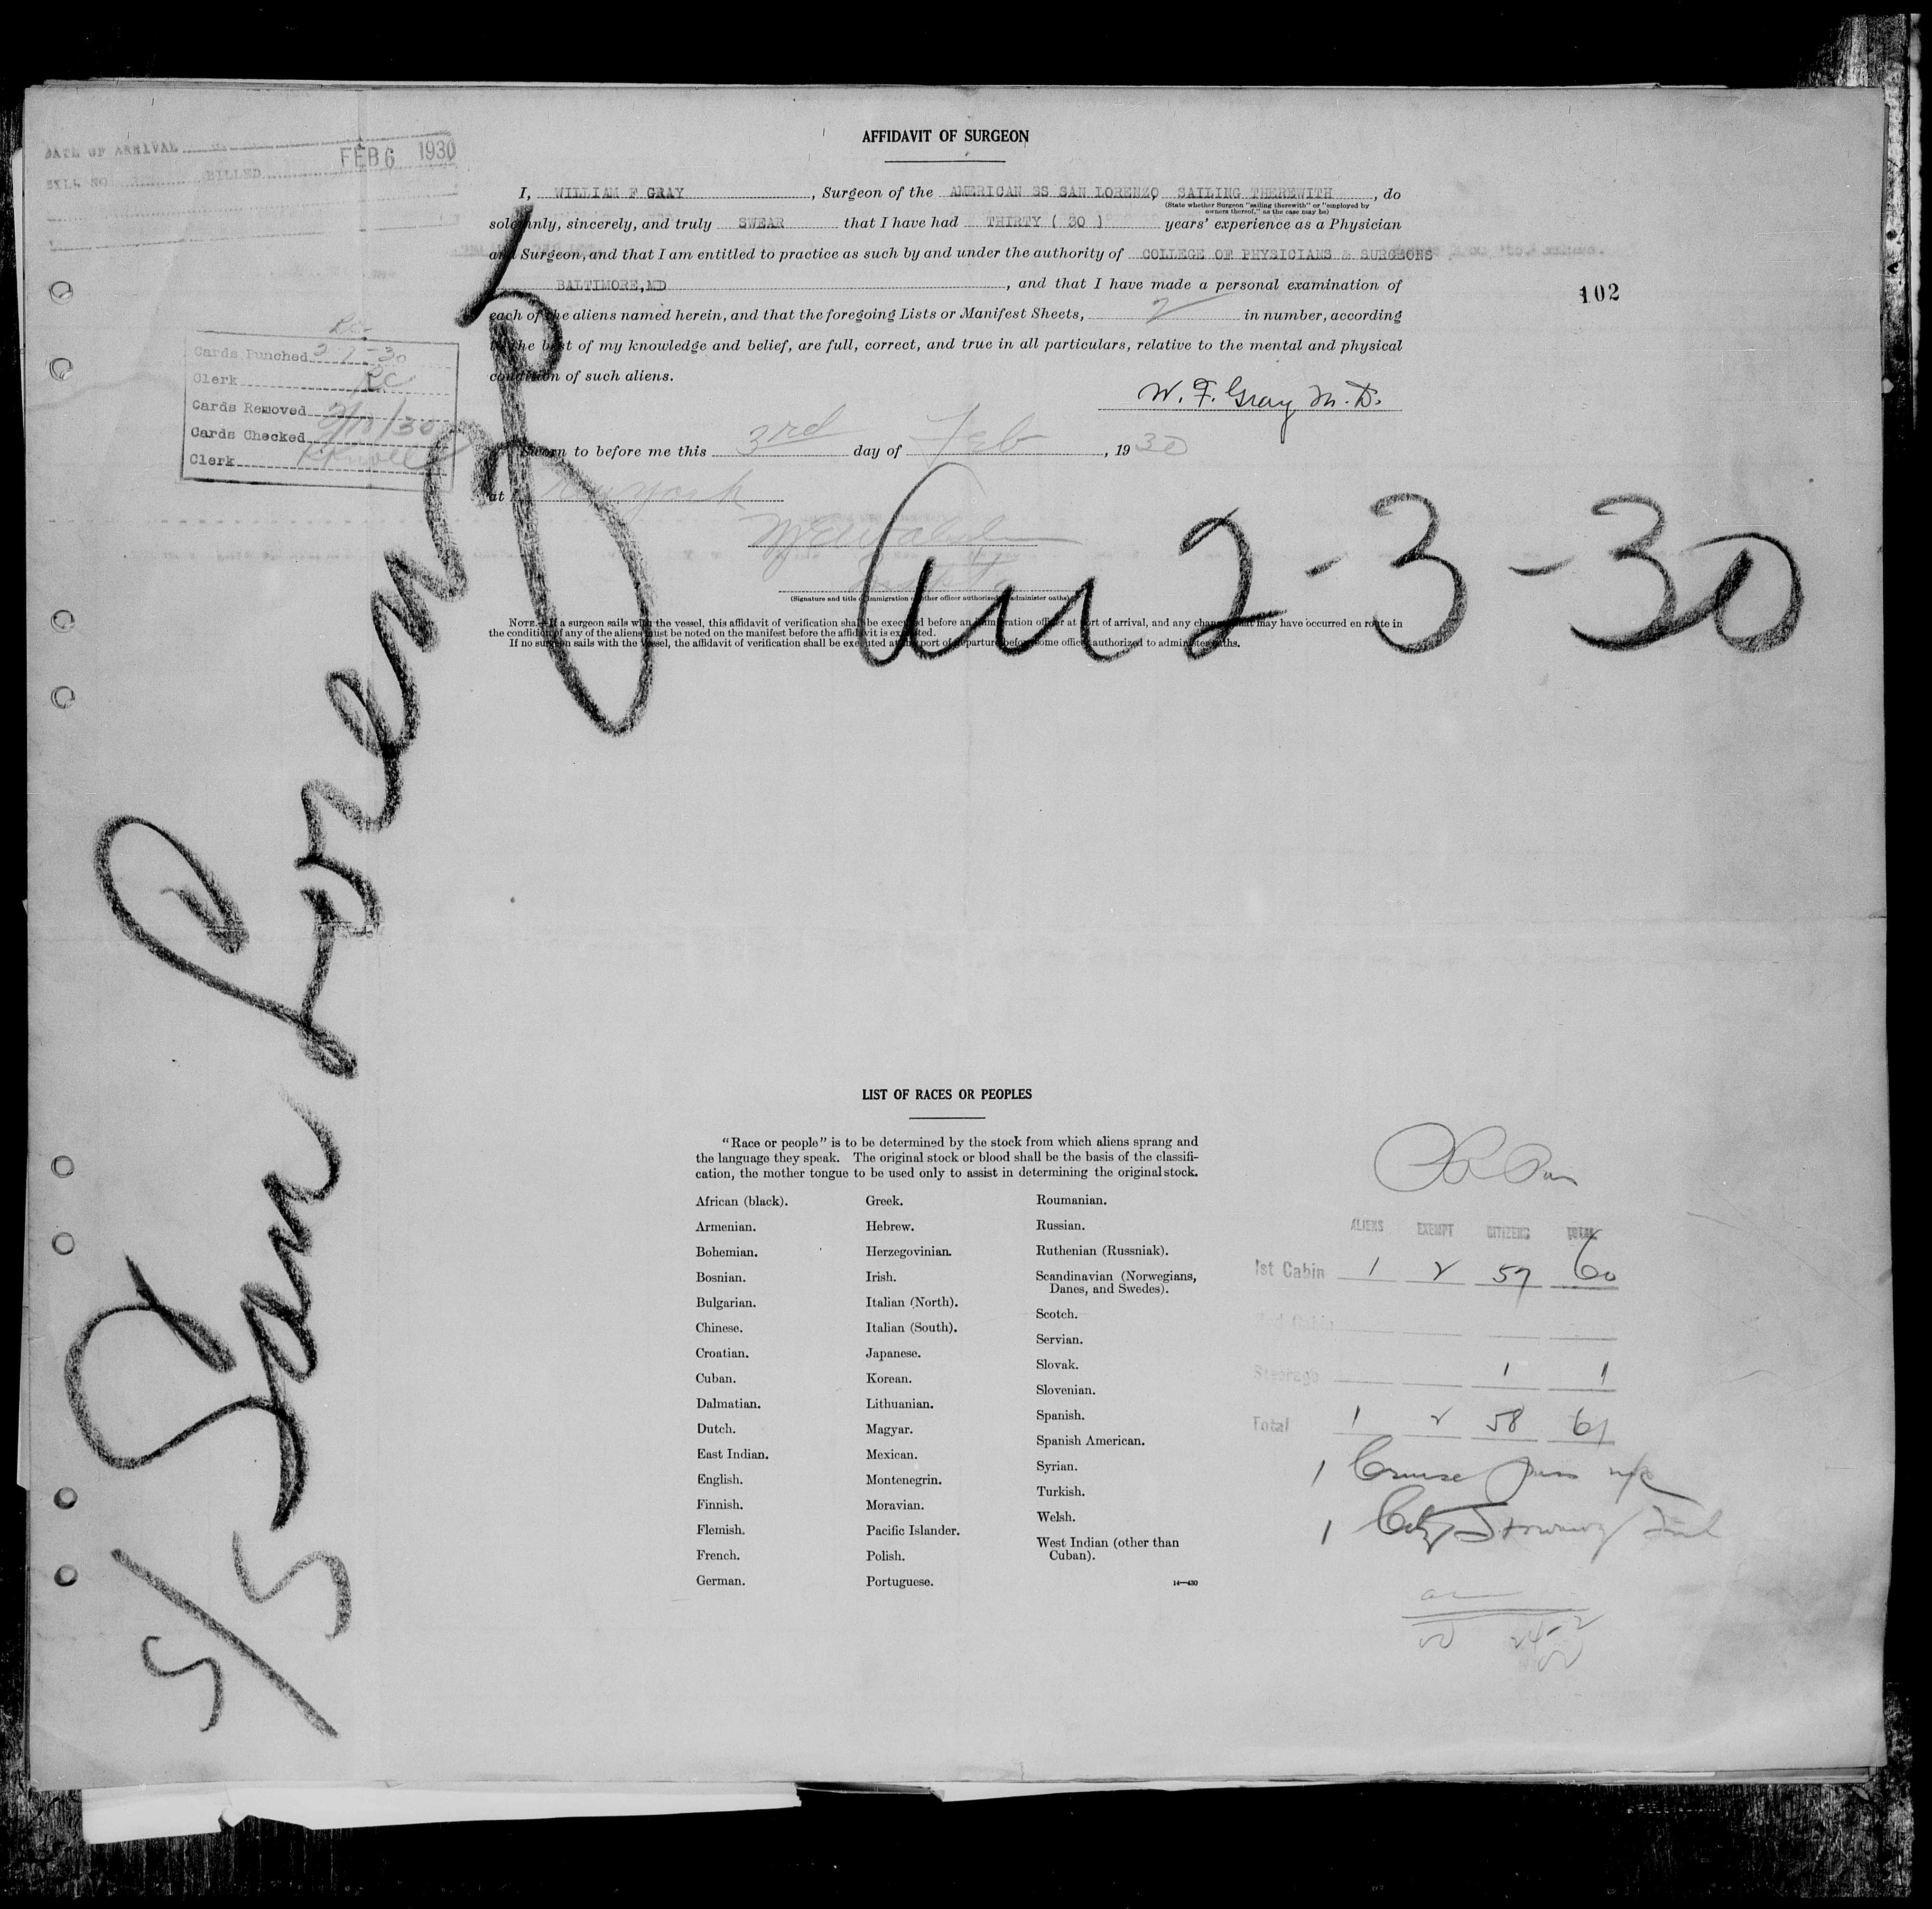 AFFIDAVIT OF SURGEON
DATE OF ARRIVAL
FEB 6 1930
BILLED
I, WILLIAM F GRAY, Surgeon of the AMERICAN SS SAN LORENZO, SAILING THEREWITH, do
(State whether Surgeon "sailing therewith" or "employed by
owners thereof," as the case may be)
solemnly, sincerely, and truly SWEAR that I have had THIRTY ( 30 ) years' experience as a Physician
and Surgeon, and that I am entitled to practice as such by and under the authority of COLLEGE OF PHYSICIANS & SURGEONS
BALTIMORE, MD, and that I have made a personal examination of
102
each of the aliens named herein, and that the foregoing Lists or Manifest Sheets, 2 in number, according
to the best of my knowledge and belief, are full, correct, and true in all particulars, relative to the mental and physical
condition of such aliens.
W. F. Gray M. D.
Cards Punched 2-7-30
Clerk RC
Cards Removed
Cards Checked 2/10/30
Clerk
Sworn to before me this 3rd day of Feb, 1930
at New York
(Signature and title of immigration or other officer authorized to administer oaths)
NOTE.—If a surgeon sails with the vessel, this affidavit of verification shall be executed before an immigration officer at port of arrival, and any changes that may have occurred en route in
the condition of any of the aliens must be noted on the manifest before the affidavit is executed.
If no surgeon sails with the vessel, the affidavit of verification shall be executed at the port of departure before some officer authorized to administer oaths.
S/S San Lorenzo
Arr 2-3-30
LIST OF RACES OR PEOPLES
"Race or people" is to be determined by the stock from which aliens sprang and
the language they speak. The original stock or blood shall be the basis of the classifi-
cation, the mother tongue to be used only to assist in determining the original stock.
African (black).
Armenian.
Bohemian.
Bosnian.
Bulgarian.
Chinese.
Croatian.
Cuban.
Dalmatian.
Dutch.
East Indian.
English.
Finnish.
Flemish.
French.
German.
Greek.
Hebrew.
Herzegovinian.
Irish.
Italian (North).
Italian (South).
Japanese.
Korean.
Lithuanian.
Magyar.
Mexican.
Montenegrin.
Moravian.
Pacific Islander.
Polish.
Portuguese.
Roumanian.
Russian.
Ruthenian (Russniak).
Scandinavian (Norwegians,
Danes, and Swedes).
Scotch.
Servian.
Slovak.
Slovenian.
Spanish.
Spanish American.
Syrian.
Turkish.
Welsh.
West Indian (other than
Cuban).
14—430
ALIENS EXEMPT CITIZENS TOTAL
1st Cabin 1 2 57 60
2nd Cabin
Steerage 1 1
Total 1 2 58 61
1 Cruise Pass
1